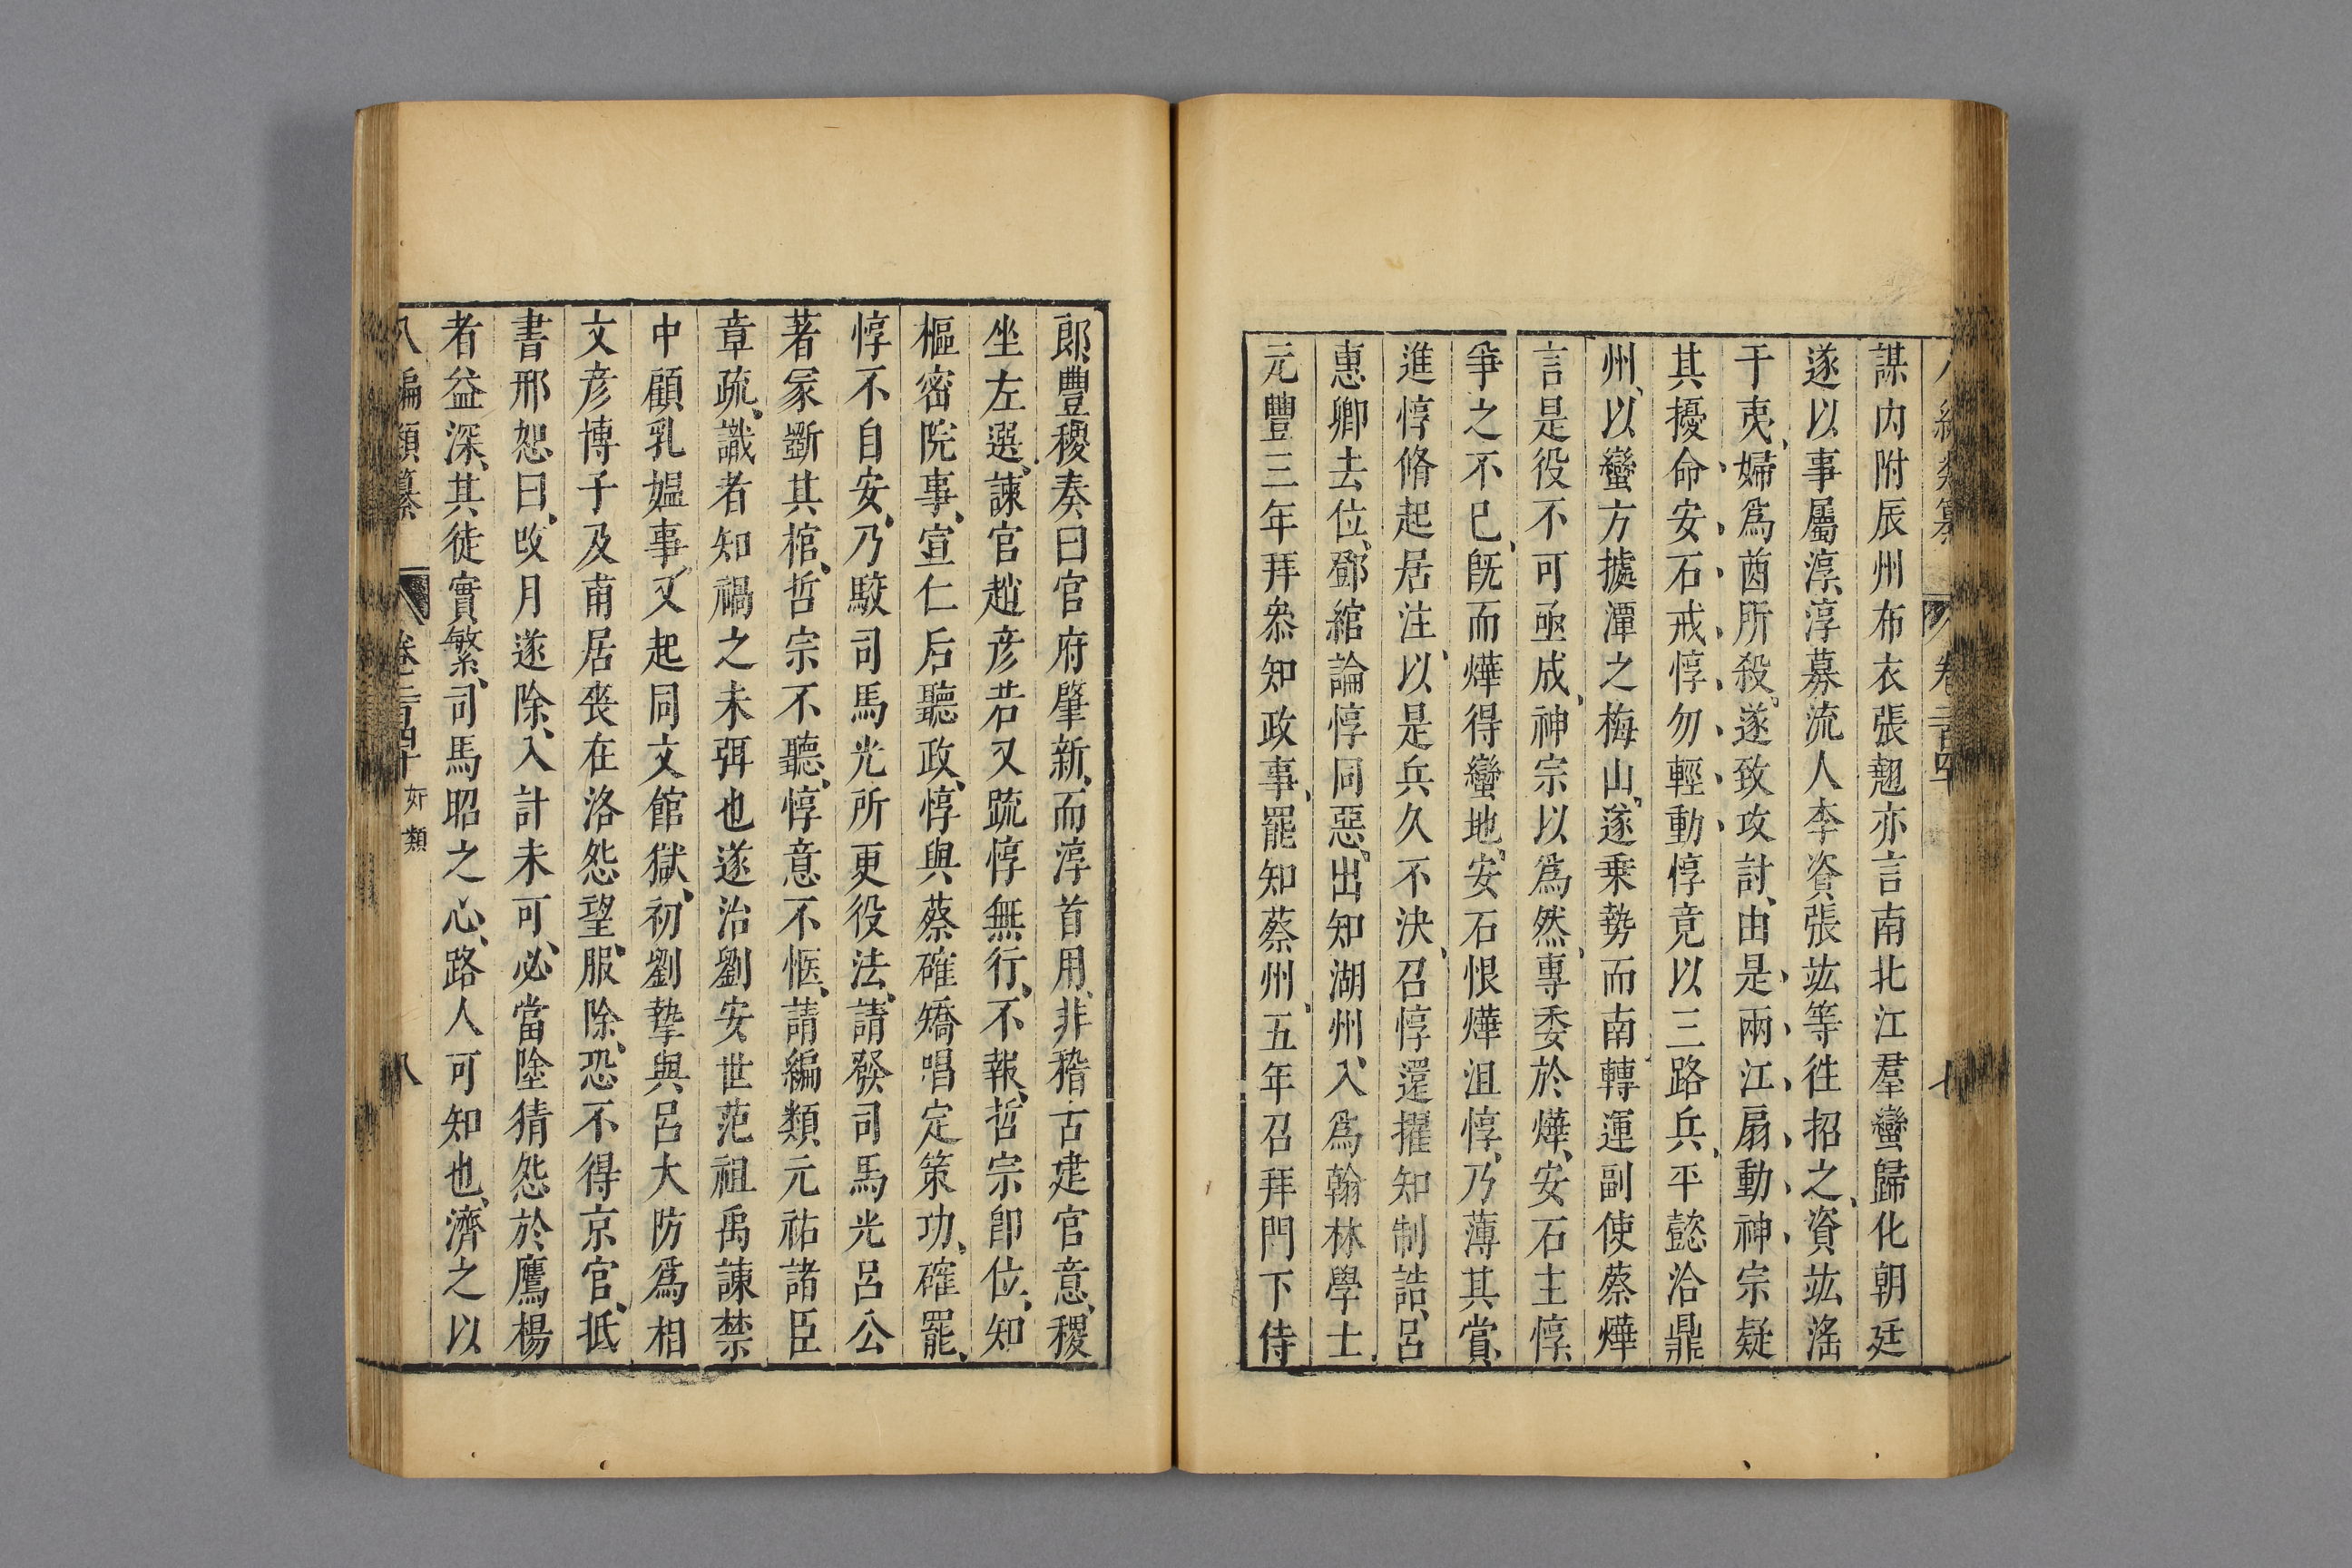 謀内附辰州布衣張翹亦言南北江羣蠻歸化朝廷
遂以事屬淳、淳募流人李資張竑等往招之、資竑滛
于夷、婦爲酋所殺、遂致攻討、由是兩江扇動神宗疑
其擾命安石戒惇勿輕動惇竟以三路兵、平懿洽鼎
州、以蠻方據潭之梅山、遂乗勢而南轉運副使蔡燁
言是役不可亟成、神宗以爲然、專委於燁、安石主惇、
爭之不已、旣而燁得蠻地、安石恨燁沮惇、乃薄其賞、
進惇脩起居注、以是兵久不決、召惇還擢知制誥、呂
惠卿去位、鄧綰論惇同惡、出知湖州、入爲翰林學士、
元豐三年拜叅知政事、罷知蔡州、五年召拜門下侍
郎、豐稷奏曰官府肇新、而淳首用、非稽古建官意、稷
坐左選、諫官趙彦若又䟽惇無行、不報、哲宗卽位、知
樞密院事、宣仁后聽政、惇與蔡確矯唱定策功、確罷、
惇不自安、乃駮司馬光所更役法、請發司馬光呂公
著冢斵其棺、哲宗不聽、惇意不愜、請編類元祐諸臣
章疏、識者知禍之未弭也遂治劉安世范祖禹諫禁
中顧乳媪事、又起同文館獄、初劉摯與呂大防爲相
文彦博子及甫居喪在洛怨望、服除、恐不得京官、抵
書邢恕曰、改月遂除、入計未可、必當塗猜怨於鷹楊
者益深、其徒實繁、司馬昭之心、路人可知也、濟之以
八編類纂 卷二百四十 奸類 八